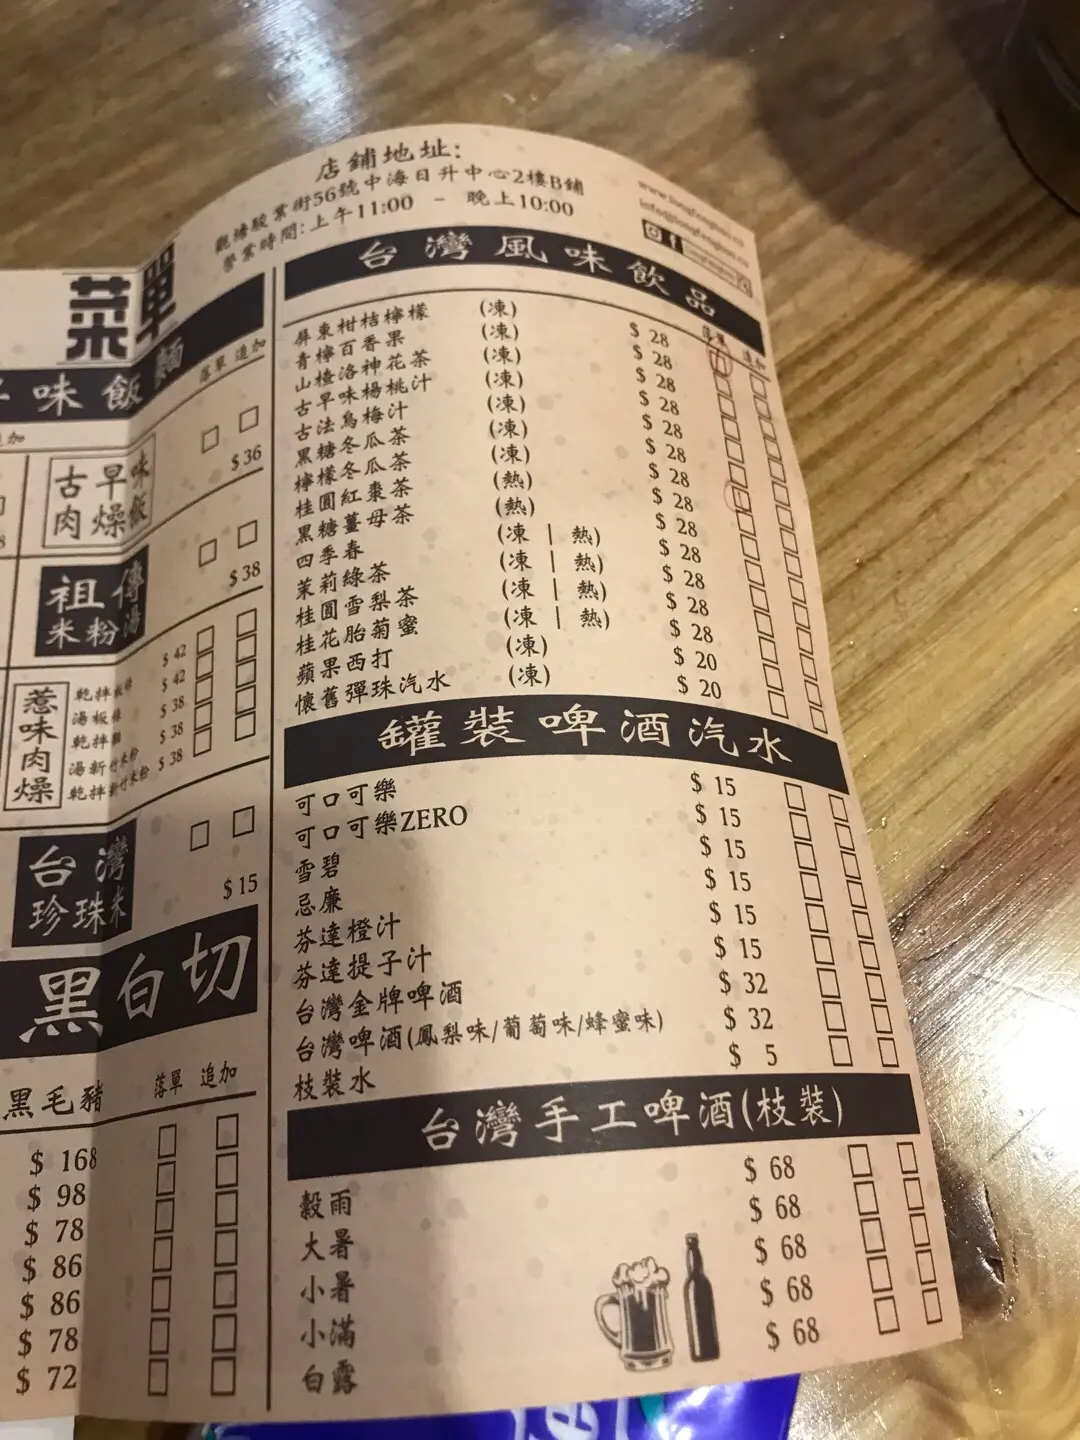 店鋪地址:
觀塘駿業街56號中海日升中心2樓B鋪
營業時間:上午11:00 - 晚上10:00
菜單
味飯麵
落單 追加
追加
古早味肉燥飯
$36
祖傳米粉湯
$38
惹味肉燥
乾拌粄條 $42
湯粄條 $42
乾拌麵 $38
湯新竹米粉 $38
乾拌新竹米粉 $38
台灣珍珠米
$15
黑白切
黑毛豬 落單 追加
$ 168
$ 98
$ 78
$ 86
$ 86
$ 78
$ 72
台灣風味飲品
落單 追加
屏東柑桔檸檬 (凍) $ 28
青檸百香果 (凍) $ 28
山楂洛神花茶 (凍) $ 28
古早味楊桃汁 (凍) $ 28
古法烏梅汁 (凍) $ 28
黑糖冬瓜茶 (凍) $ 28
檸檬冬瓜茶 (凍) $ 28
桂圓紅棗茶 (熱) $ 28
黑糖薑母茶 (熱) $ 28
四季春 (凍 | 熱) $ 28
茉莉綠茶 (凍 | 熱) $ 28
桂圓雪梨茶 (凍 | 熱) $ 28
桂花胎菊蜜 (凍 | 熱) $ 28
蘋果西打 (凍) $ 20
懷舊彈珠汽水 (凍) $ 20
罐裝啤酒汽水
可口可樂 $ 15
可口可樂ZERO $ 15
雪碧 $ 15
忌廉 $ 15
芬達橙汁 $ 15
芬達提子汁 $ 15
台灣金牌啤酒 $ 32
台灣啤酒(鳳梨味/葡萄味/蜂蜜味) $ 32
枝裝水 $ 5
台灣手工啤酒(枝裝)
穀雨 $ 68
大暑 $ 68
小暑 $ 68
小滿 $ 68
白露 $ 68